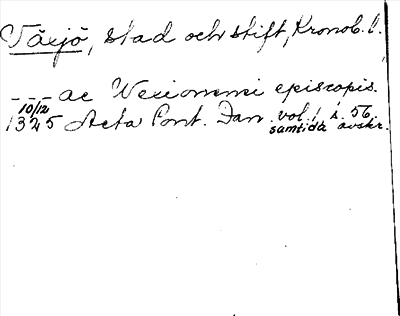 Växjö, stad och stift, Kronob. l.
--- ac Wexionensi episcopis.
10/12
1325 Acta Pont. Dan. vol. 1 s. 56.
samtida avskr.